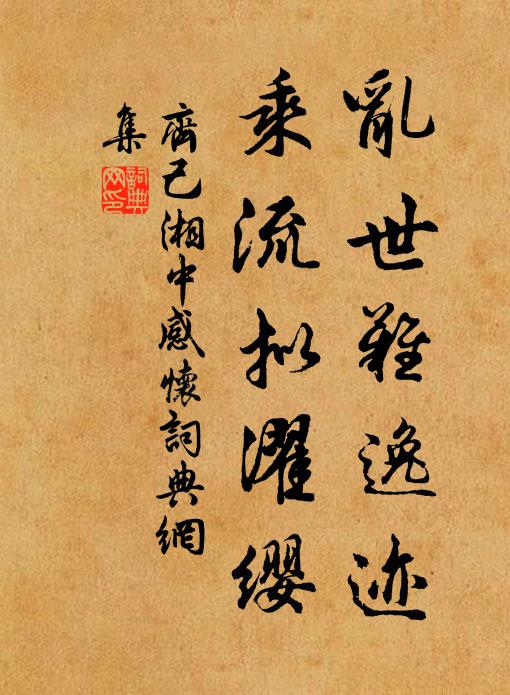 亂世難逸迹
乘流拟濯纓
齊己湘中感懷詞典網
集
詞典
网印